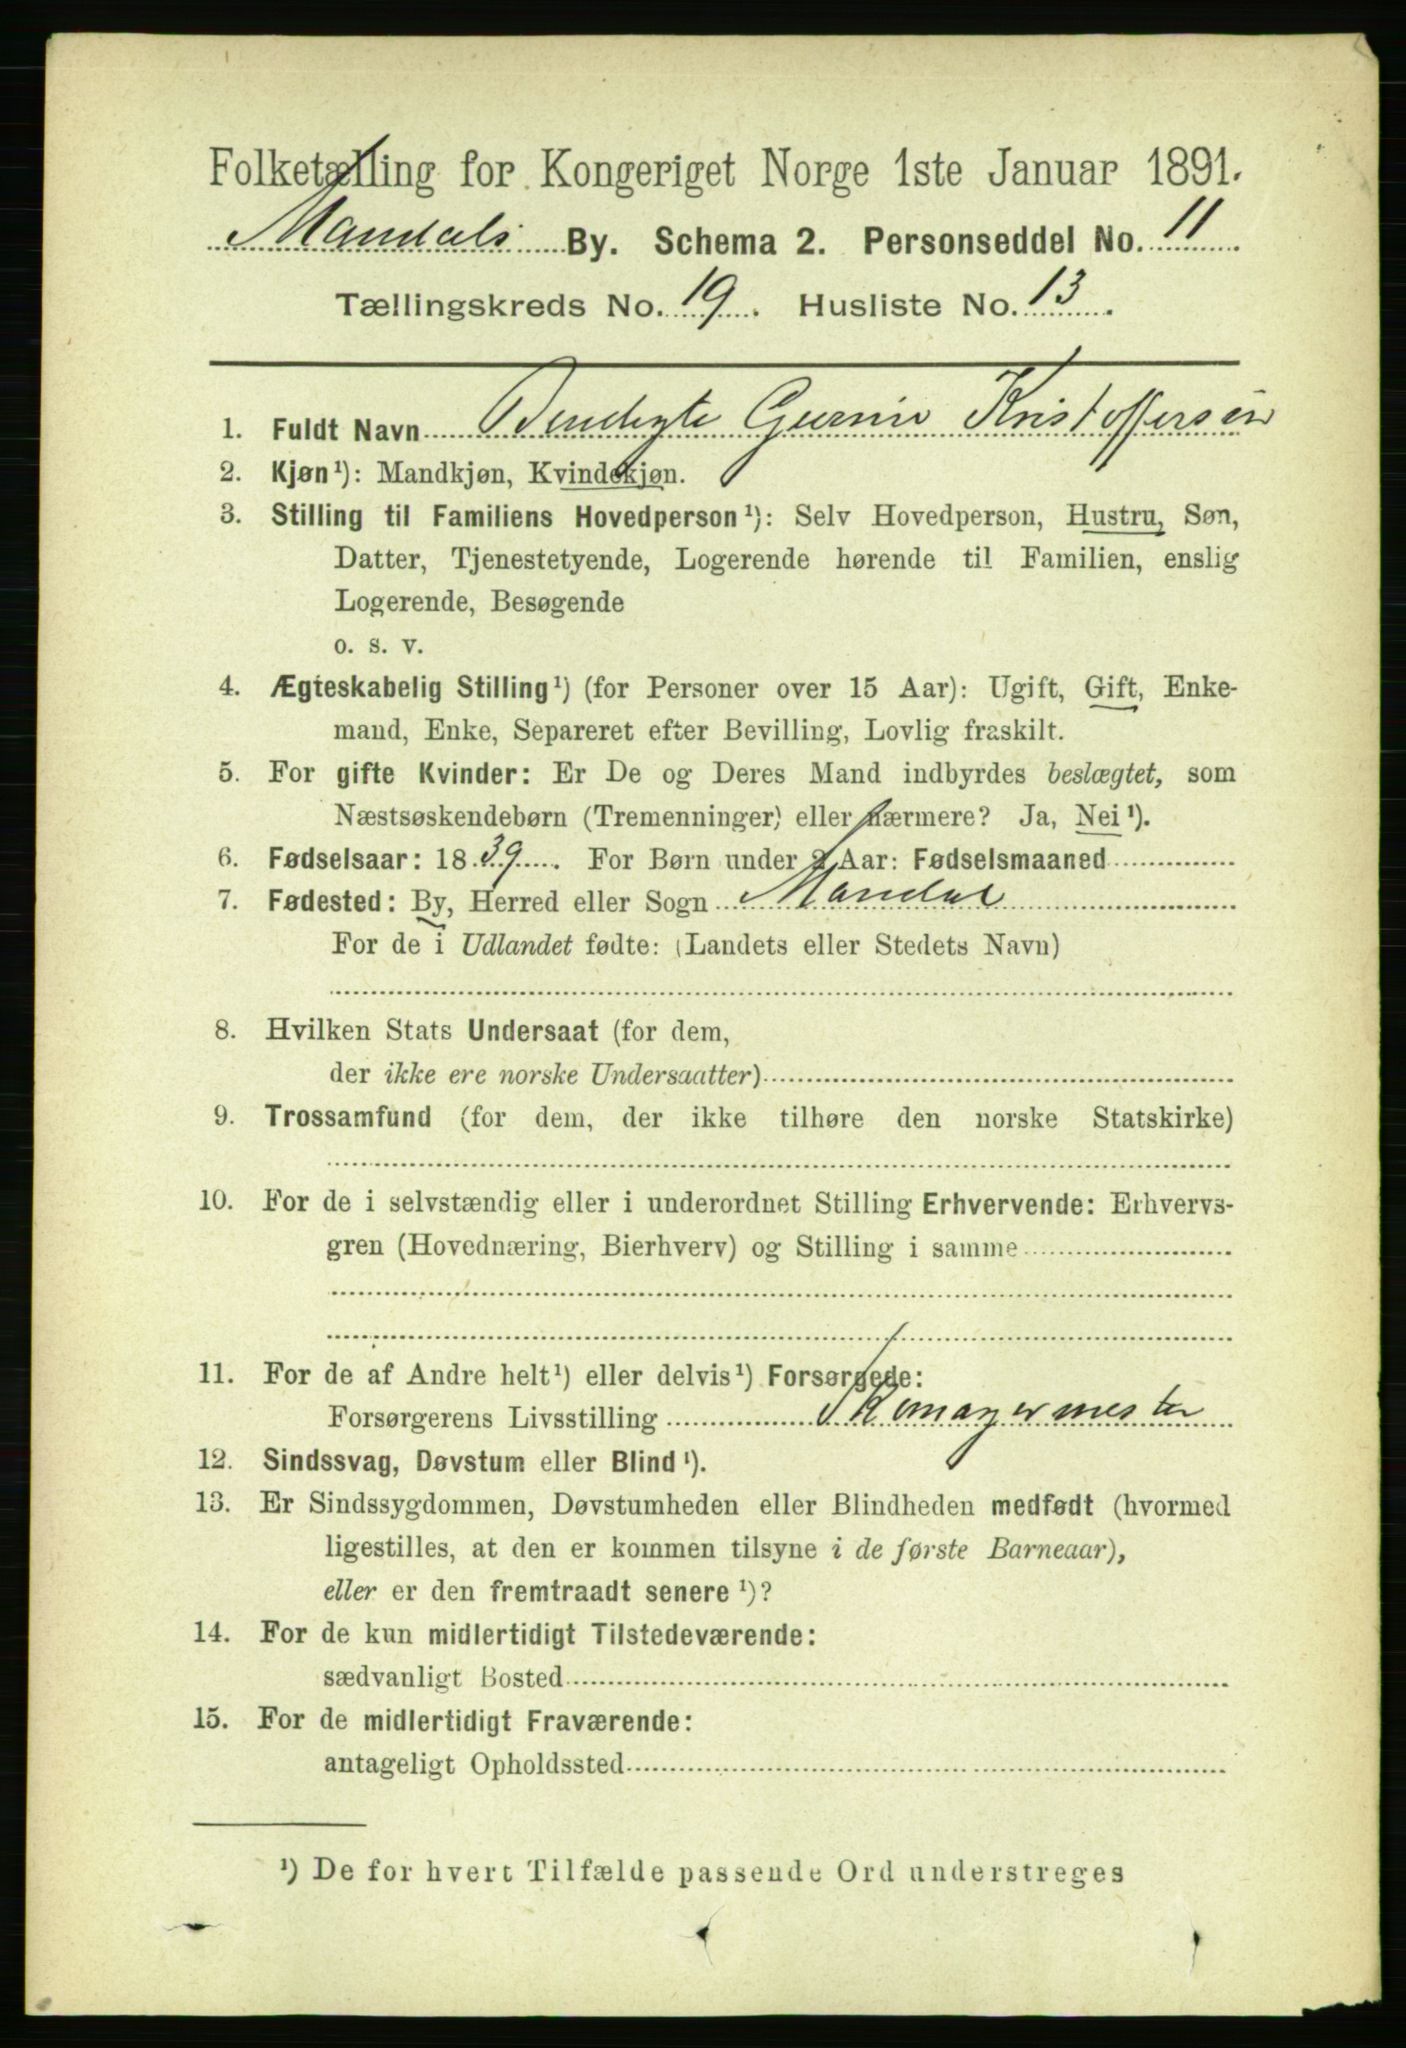 Folketælling for Kongeriget Norge 1ste Januar 1891.
Mandals By. Schema 2. Personseddel No. 11
Tællingskreds No. 19. Husliste No. 13.
1. Fuldt Navn Bendigte Gurine Kristoffersen
2. Kjøn¹): Mandkjøn, Kvindekjøn.
3. Stilling til Familiens Hovedperson¹): Selv Hovedperson, Hustru, Søn,
Datter, Tjenestetyende, Logerende hørende til Familien, enslig
Logerende, Besøgende
o. s. v.
4. Ægteskabelig Stilling¹) (for Personer over 15 Aar): Ugift, Gift, Enke-
mand, Enke, Separeret efter Bevilling, Lovlig fraskilt.
5. For gifte Kvinder: Er De og Deres Mand indbyrdes beslægtet, som
Næstsøskendebørn (Tremenninger) eller nærmere? Ja, Nei¹).
6. Fødselsaar: 1839. For Børn under 2 Aar: Fødselsmaaned
7. Fødested: By, Herred eller Sogn Mandal
For de i Udlandet fødte: (Landets eller Stedets Navn)
8. Hvilken Stats Undersaat (for dem,
der ikke ere norske Undersaatter)
9. Trossamfund (for dem, der ikke tilhøre den norske Statskirke)
10. For de i selvstændig eller i underordnet Stilling Erhvervende: Erhvervs-
gren (Hovednæring, Bierhverv) og Stilling i samme
11. For de af Andre helt¹) eller delvis¹) Forsørgede:
Forsørgerens Livsstilling Skomagermester
12. Sindssvag, Døvstum eller Blind¹).
13. Er Sindssygdommen, Døvstumheden eller Blindheden medfødt (hvormed
ligestilles, at den er kommen tilsyne i de første Barneaar),
eller er den fremtraadt senere¹)?
14. For de kun midlertidigt Tilstedeværende:
sædvanligt Bosted
15. For de midlertidigt Fraværende:
antageligt Opholdssted
¹) De for hvert Tilfælde passende Ord understreges